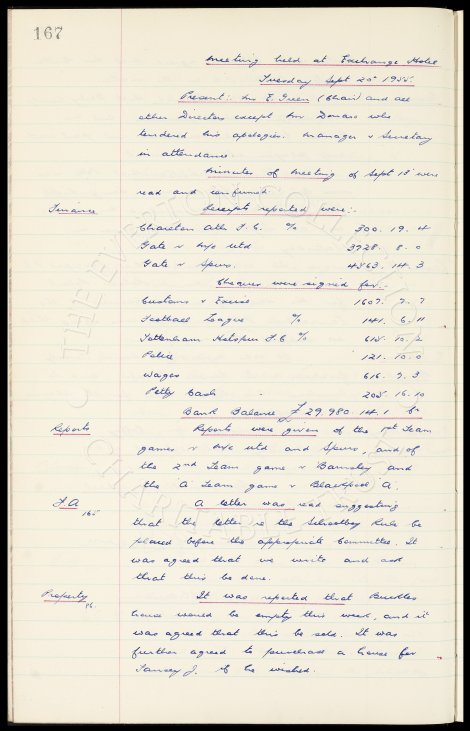 167
Meeting held at Exchange Hotel
Tuesday Sept 20th 1955.
Present:- Mr E. Green (Chair) and all
other Directors except Mr
tendered his apologies. Manager & Secretary
in attendance.
Minutes of Meeting of Sept 13 were
read and confirmed
Finance Receipts reported were:-
Charlton Ath F.C. % 300. 19. 4
Gate v M/c Utd 3728. 8. 0
Gate v Spurs. 4363. 14. 3
Cheques were signed for:-
Customs & Excise 1607. 7. 7
Football League % 141. 6. 11
Tottenham Hotspur F.C % 615. 10. 2
Police 121. 10. 0
Wages 616. 7. 3
Petty Cash 205. 16. 10
Bank Balance £29,980. 14. 1
Reports Reports were given of the 1st Team
games v M/c Utd and Spurs, and of
the 2nd Team game v Barnsley and
the 'A' Team game v Blackpool 'A'.
F.A 165 A letter was read suggesting
that the letter re the Schoolboy Rule be
placed before the appropriate Committee. It
was agreed that we write and ask
that this be done.
Property It was reported that Buckles
house would be empty this week, and it
was agreed that this be sold. It was
further agreed to purchase a house for
Tansey J. if he wished.
© THE EVERTON COLLECTION CHARITABLE TRUST